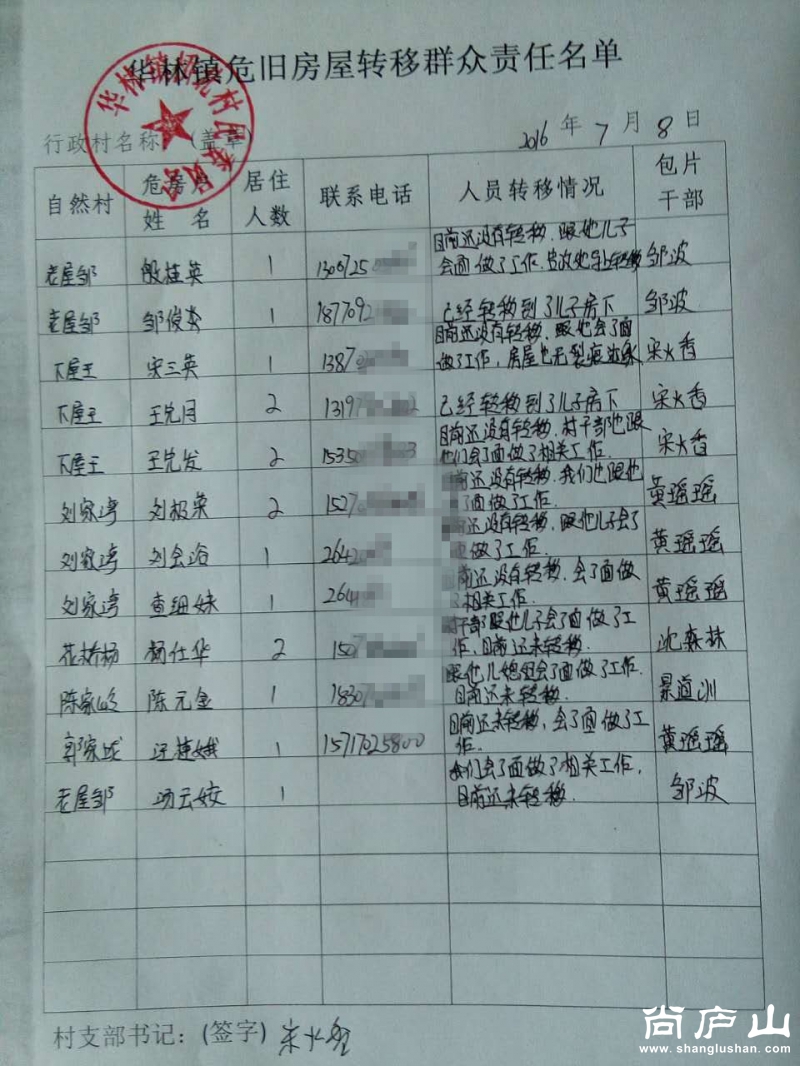 华林镇危旧房屋转移群众责任名单
行政村名称 (盖章
2016 年 7 月 8 日
自然村 危房户姓名 居住人数 联系电话 人员转移情况 包片干部
老屋邹 殷桂英 1 1306725 目前还没有转移,跟他儿子会面做了工作, 邹波
老屋邹 邹俊 1 1877092 已经转移到了儿子房下 邹波
下屋王 宋三英 1 1387 目前还没有转移,跟他会了面做了工作,房屋也无裂痕 宋火香
下屋王 王先月 2 1319 2 已经转移到了儿子房下 宋火香
下屋王 王先发 2 1535 3 目前还没有转移,村干部也跟他们会了面做了相关工作. 宋火香
刘家湾 刘极荣 2 1527 前还没有转移,我们也跟他了面做了工作. 黄瑶瑶
刘家湾 刘会浴 1 2642 前还没有转移,跟他儿子会了面做了工作. 黄瑶瑶
刘家湾 查细妹 1 264 前还没有转移,会了面做了相关工作. 黄瑶瑶
花桥杨 杨仕华 2 150 村干部跟他儿子会了面做了工作,目前还未转移. 沈森林
陈家 陈元金 1 18307 跟他儿媳妇会了面做了工作.目前还未转移. 景道训
郭家垅 汪 娥 1 15717025800 目前还未转移,会了面做了工作. 黄瑶瑶
老屋邹 汤云姣 1 我们会了面做了相关工作,目前还未转移. 邹波
村支部书记:(签字) 宋火
尚庐山
www.shanglushan.com